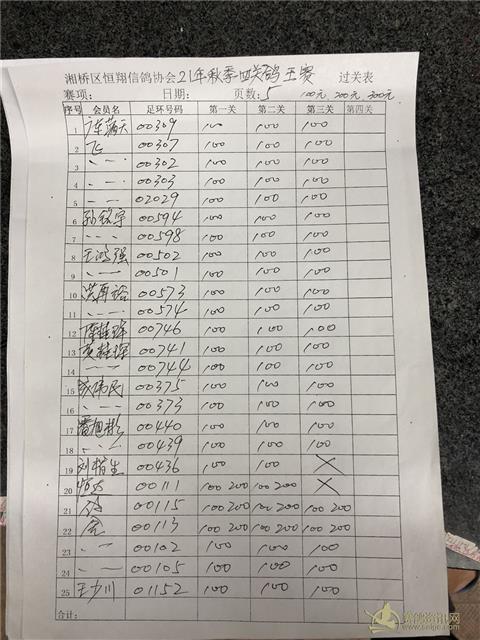 湘桥区恒翔信鸽协会21年秋季四关鸽王赛 过关表
赛项: 日期: 页数: 5 100元 200元 300元
序号 会员名 足环号码 第一关 第二关 第三关 第四关
1 00309 100 100 100
2 00307 100 100 100
3 〃 00302 100 100 100
4 〃 00303 100 100 100
5 〃 02029 100 100 100
6 孙铭宇 00594 100 100 100
7 〃 00598 100 100 100
8 王鸿强 00502 100 100 100
9 〃 00501 100 100 100
10 洪再裕 00573 100 100 100
11 〃 00574 100 100 100
12 00746 100 100 100
13 00741 100 100 100
14 〃 00744 100 100 100
15 伟民 00375 100 100 100
16 〃 00373 100 100 100
17 旭彬 00440 100 100 100
18 〃 00439 100 100 100
19 刘楷生 00436 100 100 ×
20 恒达 00111 100 200 100 200 ×
21 00115 100 200 100 200 100 200
22 00113 100 200 100 200 100 200
23 〃 00102 100 100 100
24 〃 00105 100 100 100
25 王少川 01152 100 100 100
合计: